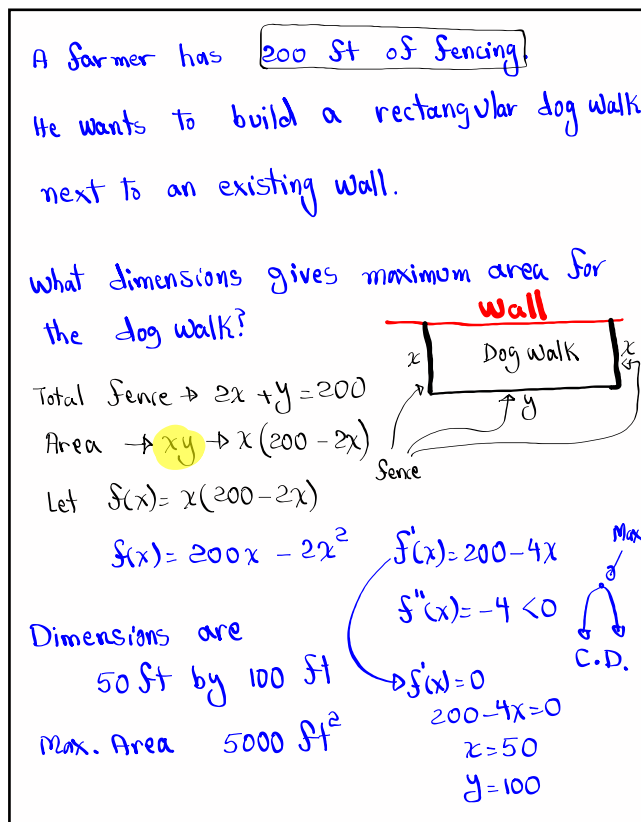 A farmer has 200 ft of fencing.
He wants to build a rectangular dog walk
next to an existing wall.
What dimensions gives maximum area for
the dog walk?
Wall
x Dog walk x
y
fence
Total fence → 2x + y = 200
Area → xy → x(200 - 2x)
Let f(x) = x(200 - 2x)
f(x) = 200x - 2x²
f'(x) = 200 - 4x
f''(x) = -4 < 0
Max
C.D.
f'(x) = 0
200 - 4x = 0
x = 50
y = 100
Dimensions are
50 ft by 100 ft
Max. Area 5000 ft²